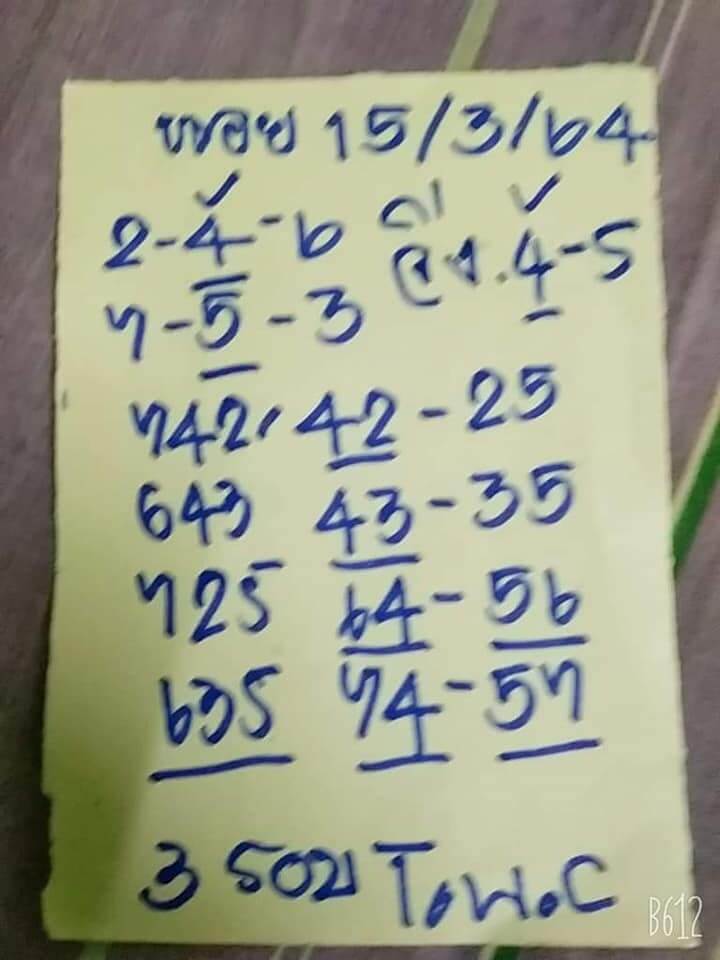 หอย 15/3/64
2-4-6 วิ่ง.4-5
7-5-3
742, 42-25
643 43-35
725 64-56
635 74-57
3 รอบ
B612